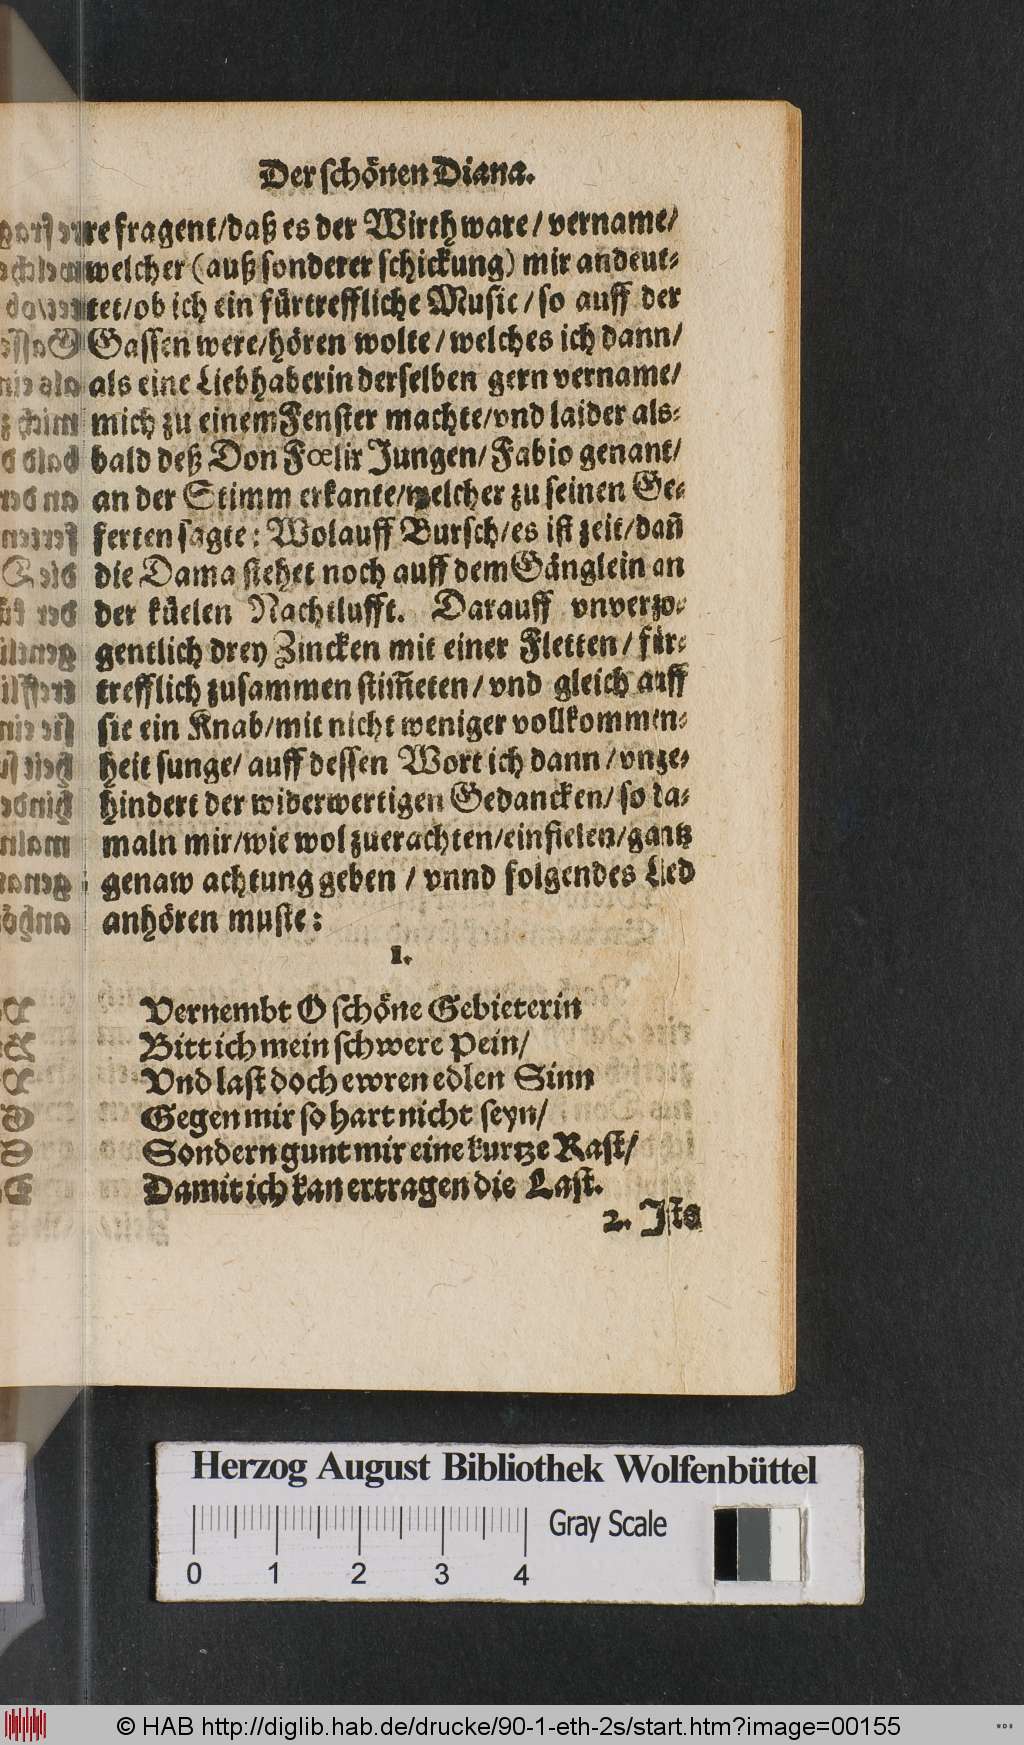 Der schönen Diana.
re fragent/daß es der Wirth ware/ vername/
welcher (auß sonderer schickung) mir andeut-
tet/ob ich ein fürtreffliche Music/so auff der
Gassen were/hören wolte/welches ich dann/
als eine Liebhaberin derselben gern vername/
mich zu einem Fenster machte/vnd laider als-
bald deß Don Fœlix Jungen/Fabio genant/
an der Stimm erkante/welcher zu seinen Ge-
ferten sagte: Wolauff Bursch/es ist zeit/dañ
die Dama stehet noch auff dem Gänglein an
der küelen Nachtlufft. Darauff vnverzo-
gentlich drey Zincken mit einer Fletten/für-
trefflich zusammen stim̃eten/vnd gleich auff
sie ein Knab/mit nicht weniger vollkommen-
heit sunge/auff dessen Wort ich dann/vnge-
hindert der widerwertigen Gedancken/so da-
maln mir/wie wol zuerachten/einfielen/gantz
genaw achtung geben/vnnd folgendes Lied
anhören muste:
1.
Vernembt O schöne Gebieterin
Bitt ich mein schwere Pein/
Vnd last doch ewren edlen Sinn
Gegen mir so hart nicht seyn/
Sondern gunt mir eine kurtze Rast/
Damit ich kan ertragen die Last.
2. Jsts
Herzog August Bibliothek Wolfenbüttel
0 1 2 3 4 Gray Scale
© HAB http://diglib.hab.de/drucke/90-1-eth-2s/start.htm?image=00155